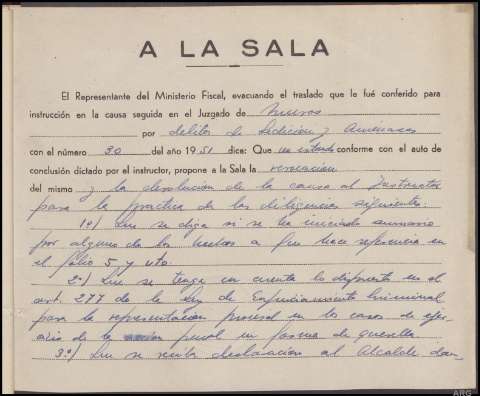 A LA SALA
El Representante del Ministerio Fiscal, evacuando el traslado que le fué conferido para
instrucción en la causa seguida en el Juzgado de Muros
por delitos de Sedición y Amenazas
con el número 30 del año 1951 dice: Que no estando conforme con el auto de
conclusión dictado por el instructor, propone a Sala la revocación
del mismo y la devolución de la causa al Instructor
para la practica de las diligencias siguientes:
1º) Que se diga si se ha iniciado sumario
por alguno de los hechos a que hace referencia en
el folio 5 y vto.
2º) Que se tenga en cuenta lo dispuesto en el
art. 277 de la Ley de Enjuiciamiento Criminal
para la representación procesal en los casos de ejer-
cicio de la penal en forma de querella.
3º) Que se reciba declaración al Alcalde dan-
ARG